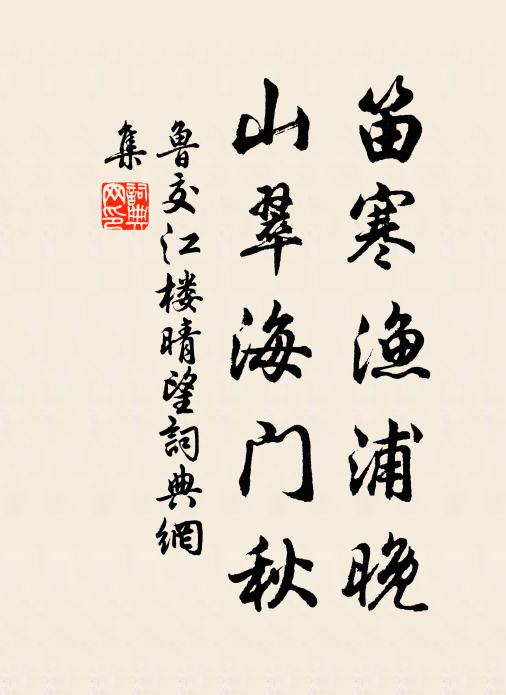 笛寒渔浦晚
山翠海门秋
鲁交江楼晴望詞典網
集
詞典网印